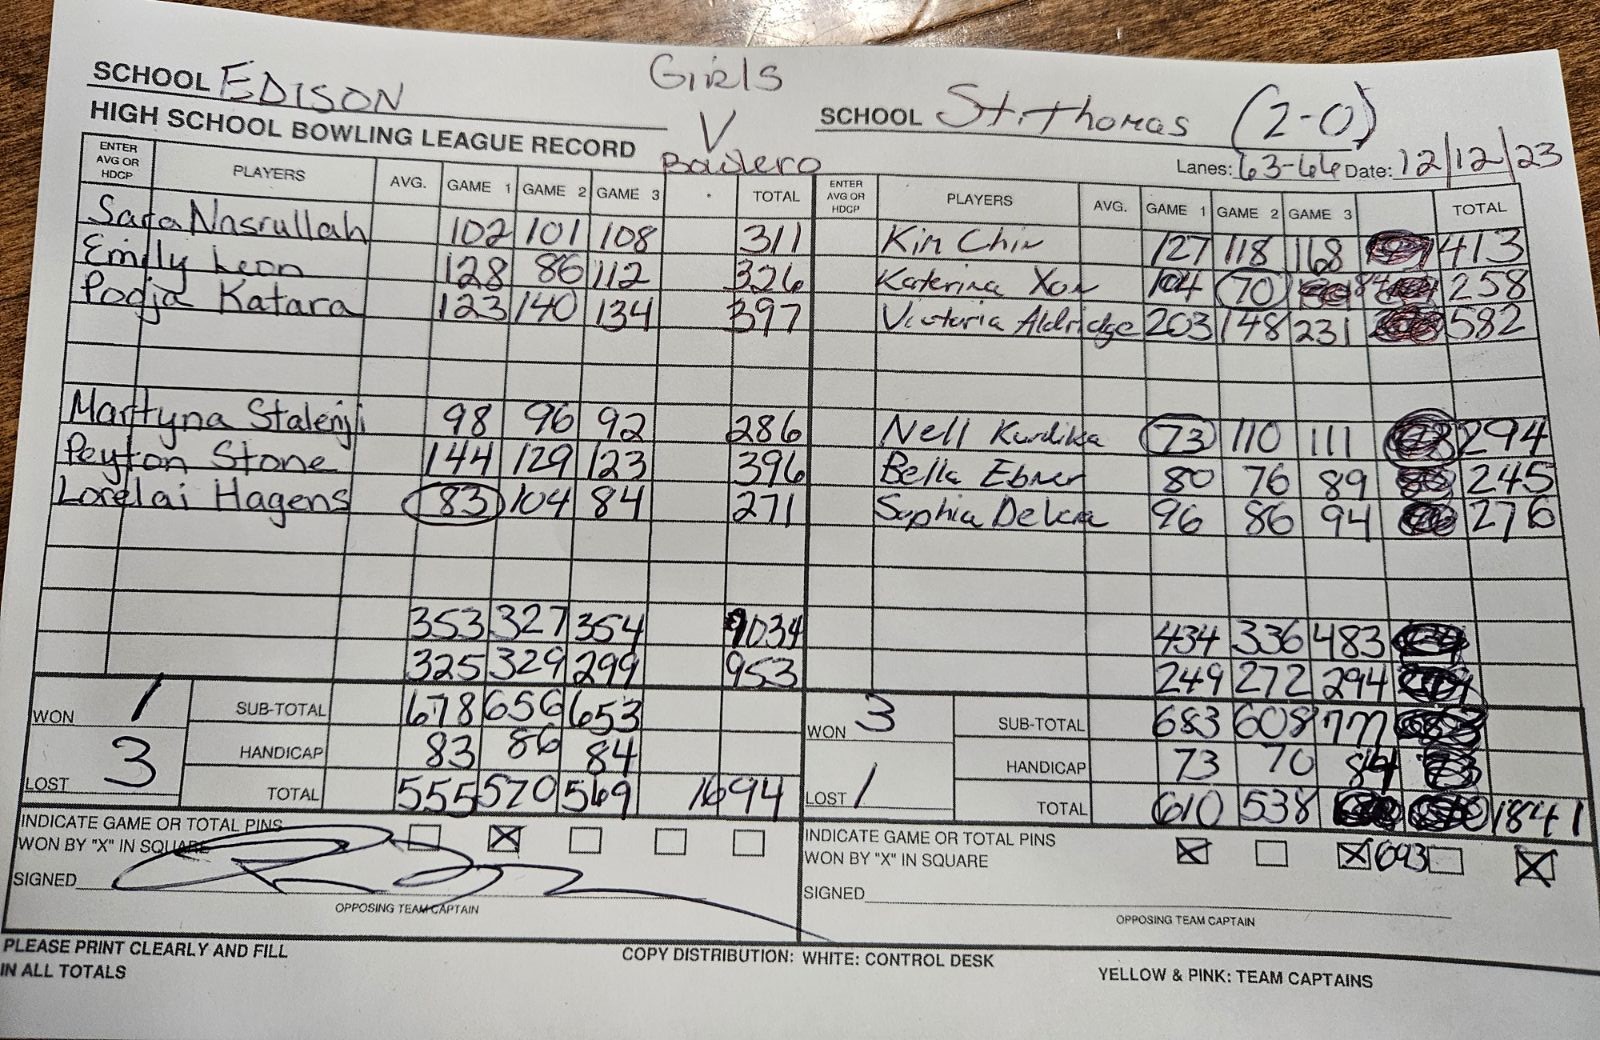 SCHOOL EDISON Girls SCHOOL St. Thomas (2-0)
HIGH SCHOOL BOWLING LEAGUE RECORD V
Bowlero Lanes: 63-64 Date: 12/12/23
ENTER AVG OR HDCP PLAYERS AVG. GAME 1 GAME 2 GAME 3 TOTAL ENTER AVG OR HDCP PLAYERS AVG. GAME 1 GAME 2 GAME 3 TOTAL
Sara Nasrullah 102 101 108 311 Kim Chin 127 118 168 413
Emily Leon 128 86 112 326 Katerina 104 70 84 258
Pooja Katara 123 140 134 397 Victoria Aldridge 203 148 231 582
Martyna 98 96 92 286 Nell Kurdika 73 110 111 294
Peyton Stone 144 129 123 396 Bella Ebner 80 76 89 245
Lorelai Hagens 83 104 84 271 Sophia 96 86 94 276
353 327 354 1034 434 336 483
325 329 299 953 249 272 294
WON 1 SUB-TOTAL 678 656 653 WON 3 SUB-TOTAL 683 608 777
HANDICAP 83 86 84 HANDICAP 73 70 84
LOST 3 TOTAL 555 570 569 1694 LOST 1 TOTAL 610 538 1841
INDICATE GAME OR TOTAL PINS INDICATE GAME OR TOTAL PINS
WON BY "X" IN SQUARE X WON BY "X" IN SQUARE X X 693 X
SIGNED SIGNED
OPPOSING TEAM CAPTAIN OPPOSING TEAM CAPTAIN
PLEASE PRINT CLEARLY AND FILL
IN ALL TOTALS
COPY DISTRIBUTION: WHITE: CONTROL DESK
YELLOW & PINK: TEAM CAPTAINS